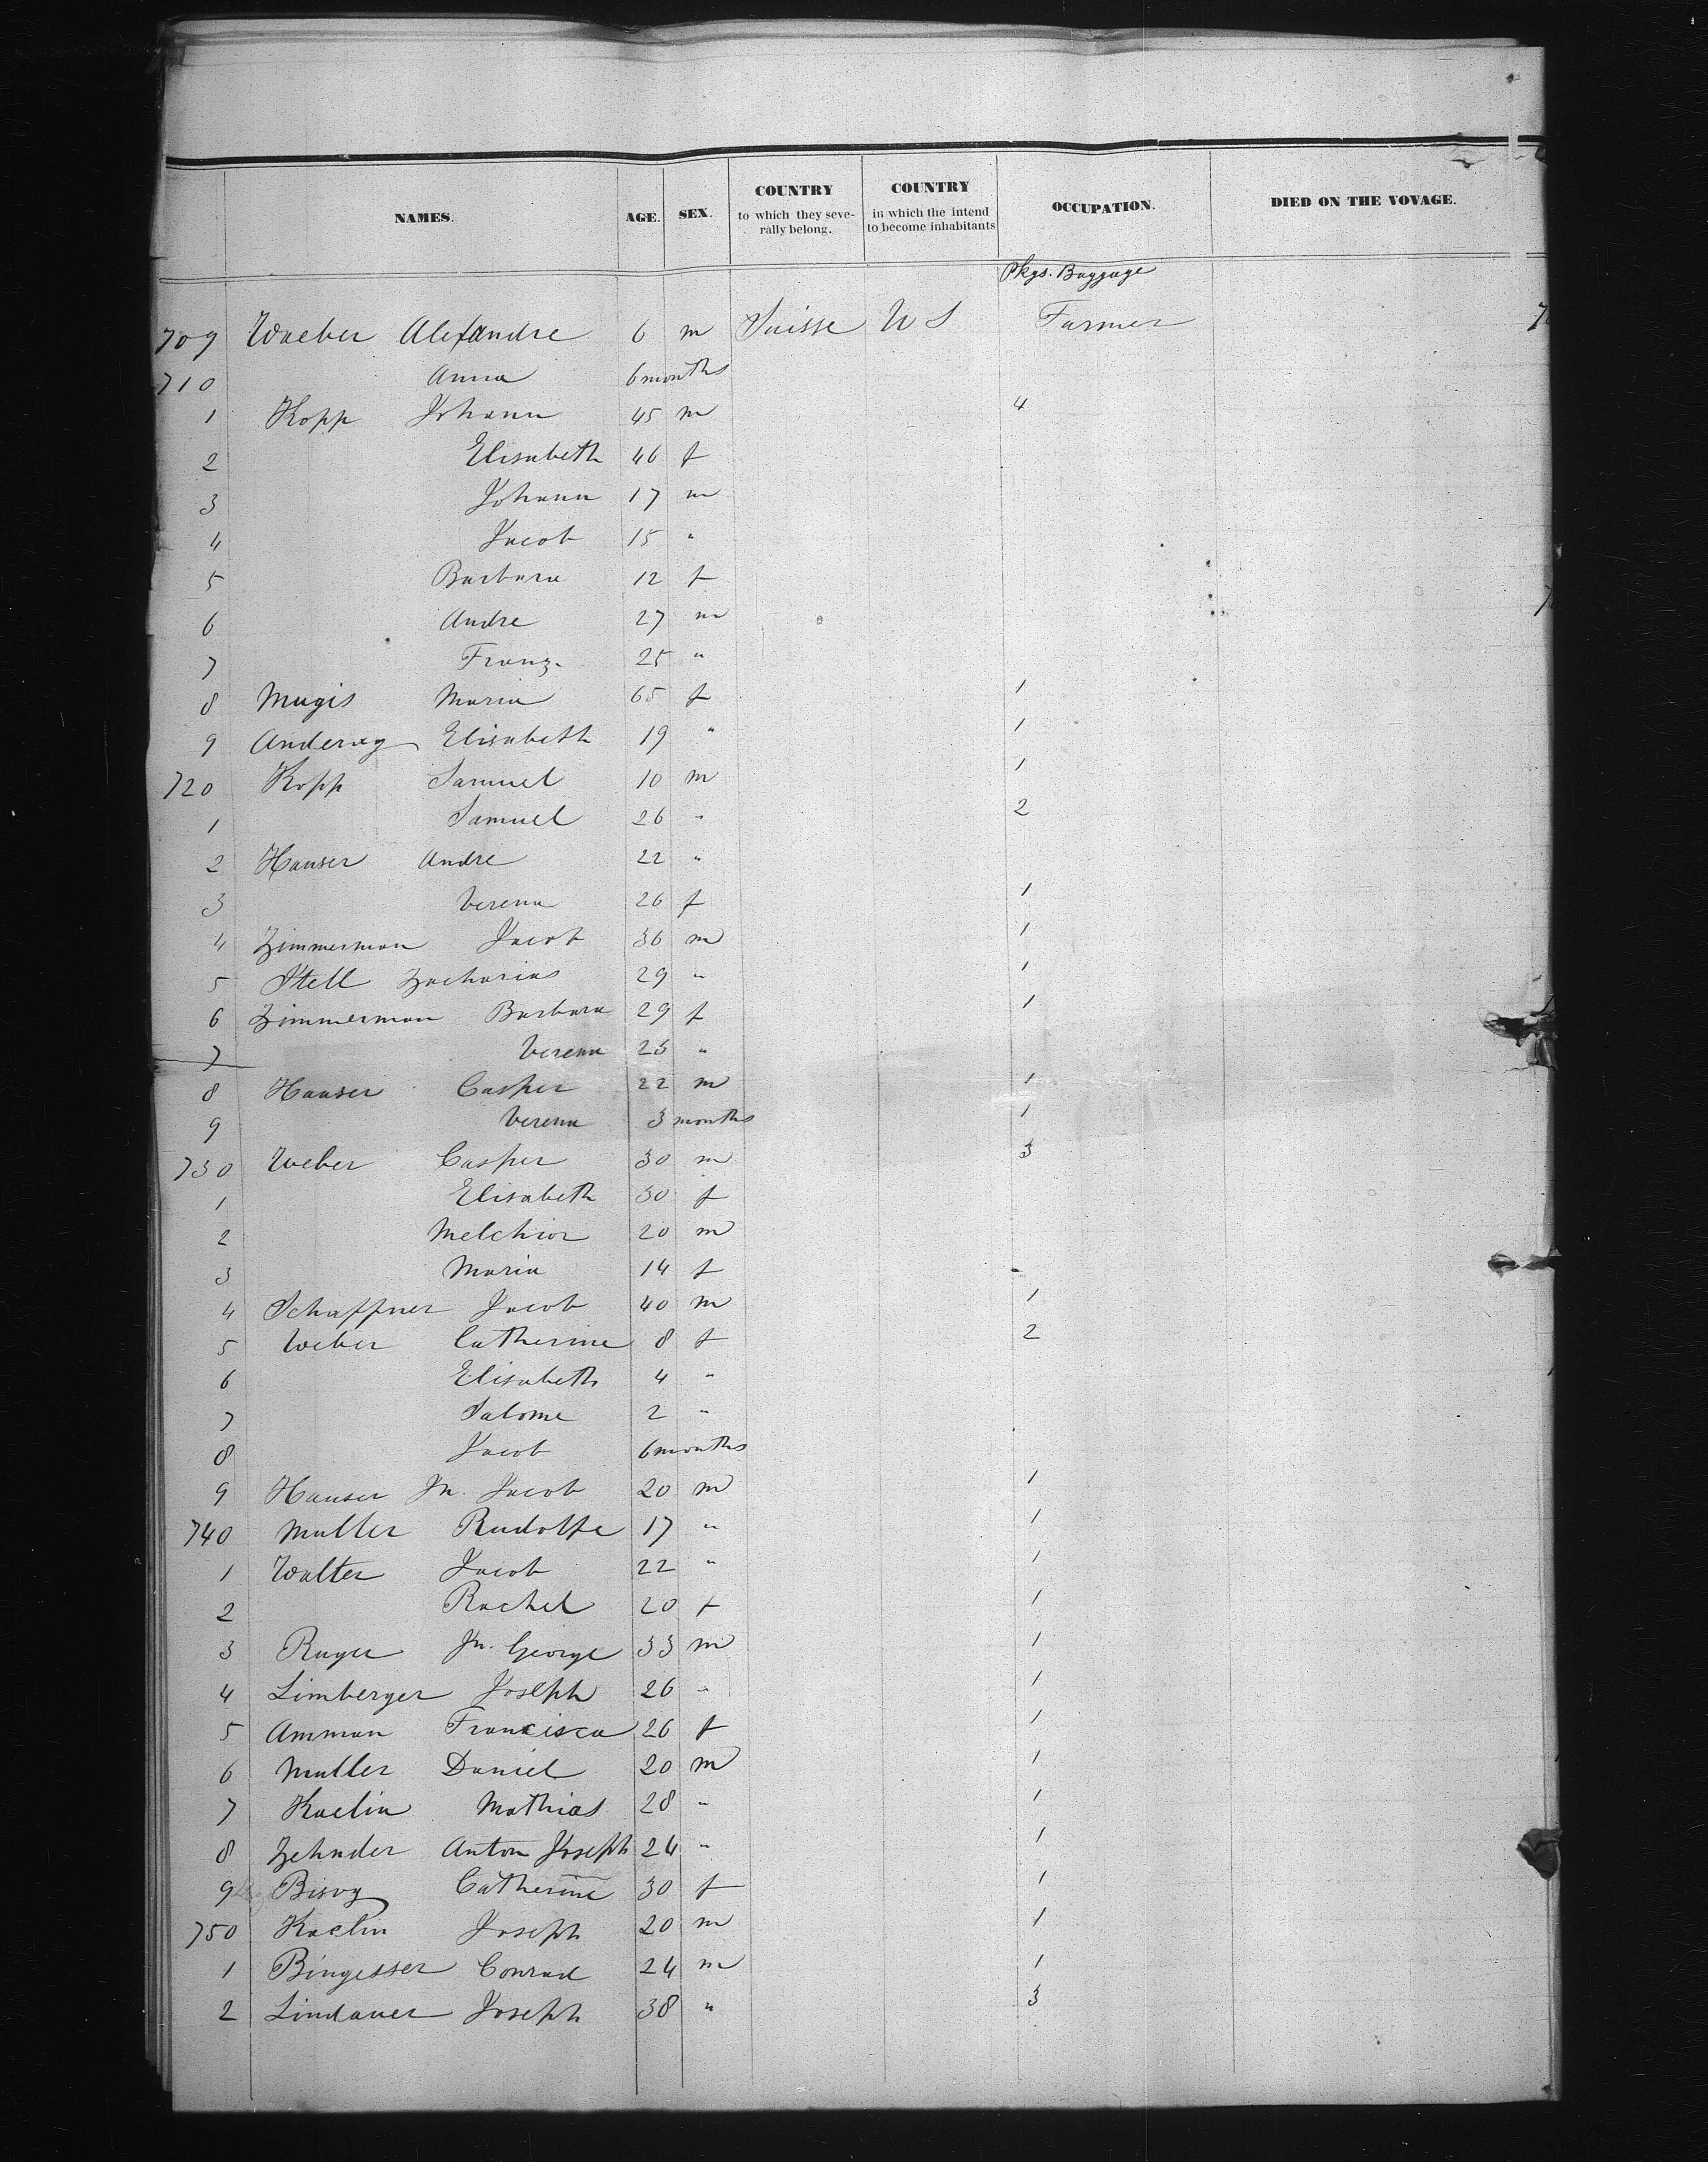 NAMES. AGE. SEX. COUNTRY to which they seve-rally belong. COUNTRY in which the intend to become inhabitants OCCUPATION. DIED ON THE VOYAGE.
Pkgs. Baggage
709 Waeber Alexandre 6 m Suisse U S Farmer
710 Anna 6 months
1 Kopp Johann 45 m 4
2 Elisabeth 46 f
3 Johann 17 m
4 Jacob 15 "
5 Barbara 12 f
6 Andre 27 m
7 Franz. 25 "
8 Mugis Maria 65 f 1
9 Andereg Elisabeth 19 " 1
720 Kopp Samuel 10 m 1
1 Samuel 26 " 2
2 Hauser Andre 22 "
3 Verena 26 f 1
4 Zimmerman Jacob 36 m 1
5 Stell Zacharias 29 " 1
6 Zimmerman Barbara 29 f 1
7 Verena 23 "
8 Hauser Casper 22 m 1
9 Verena 3 months 1
730 Weber Casper 30 m 3
1 Elisabeth 30 f
2 Melchior 20 m
3 Maria 14 f
4 Schaffner Jacob 40 m 1
5 Weber Catherine 8 f 2
6 Elisabeth 4 "
7 Salome 2 "
8 Jacob 6 months
9 Hauser Jn. Jacob 20 m 1
740 Muller Rudolfe 17 " 1
1 Walter Jacob 22 " 1
2 Rachel 20 f 1
3 Ruger Jn. George 33 m 1
4 Limberger Joseph 26 " 1
5 Amman Francisca 26 f 1
6 Muller Daniel 20 m 1
7 Kaelin Mathias 28 " 1
8 Zehnder Anton Joseph 24 " 1
9 Bisvg Catherine 30 f 1
750 Kaelin Joseph 20 m 1
1 Bingesser Conrad 24 m 1
2 Lindauer Joseph 38 " 3